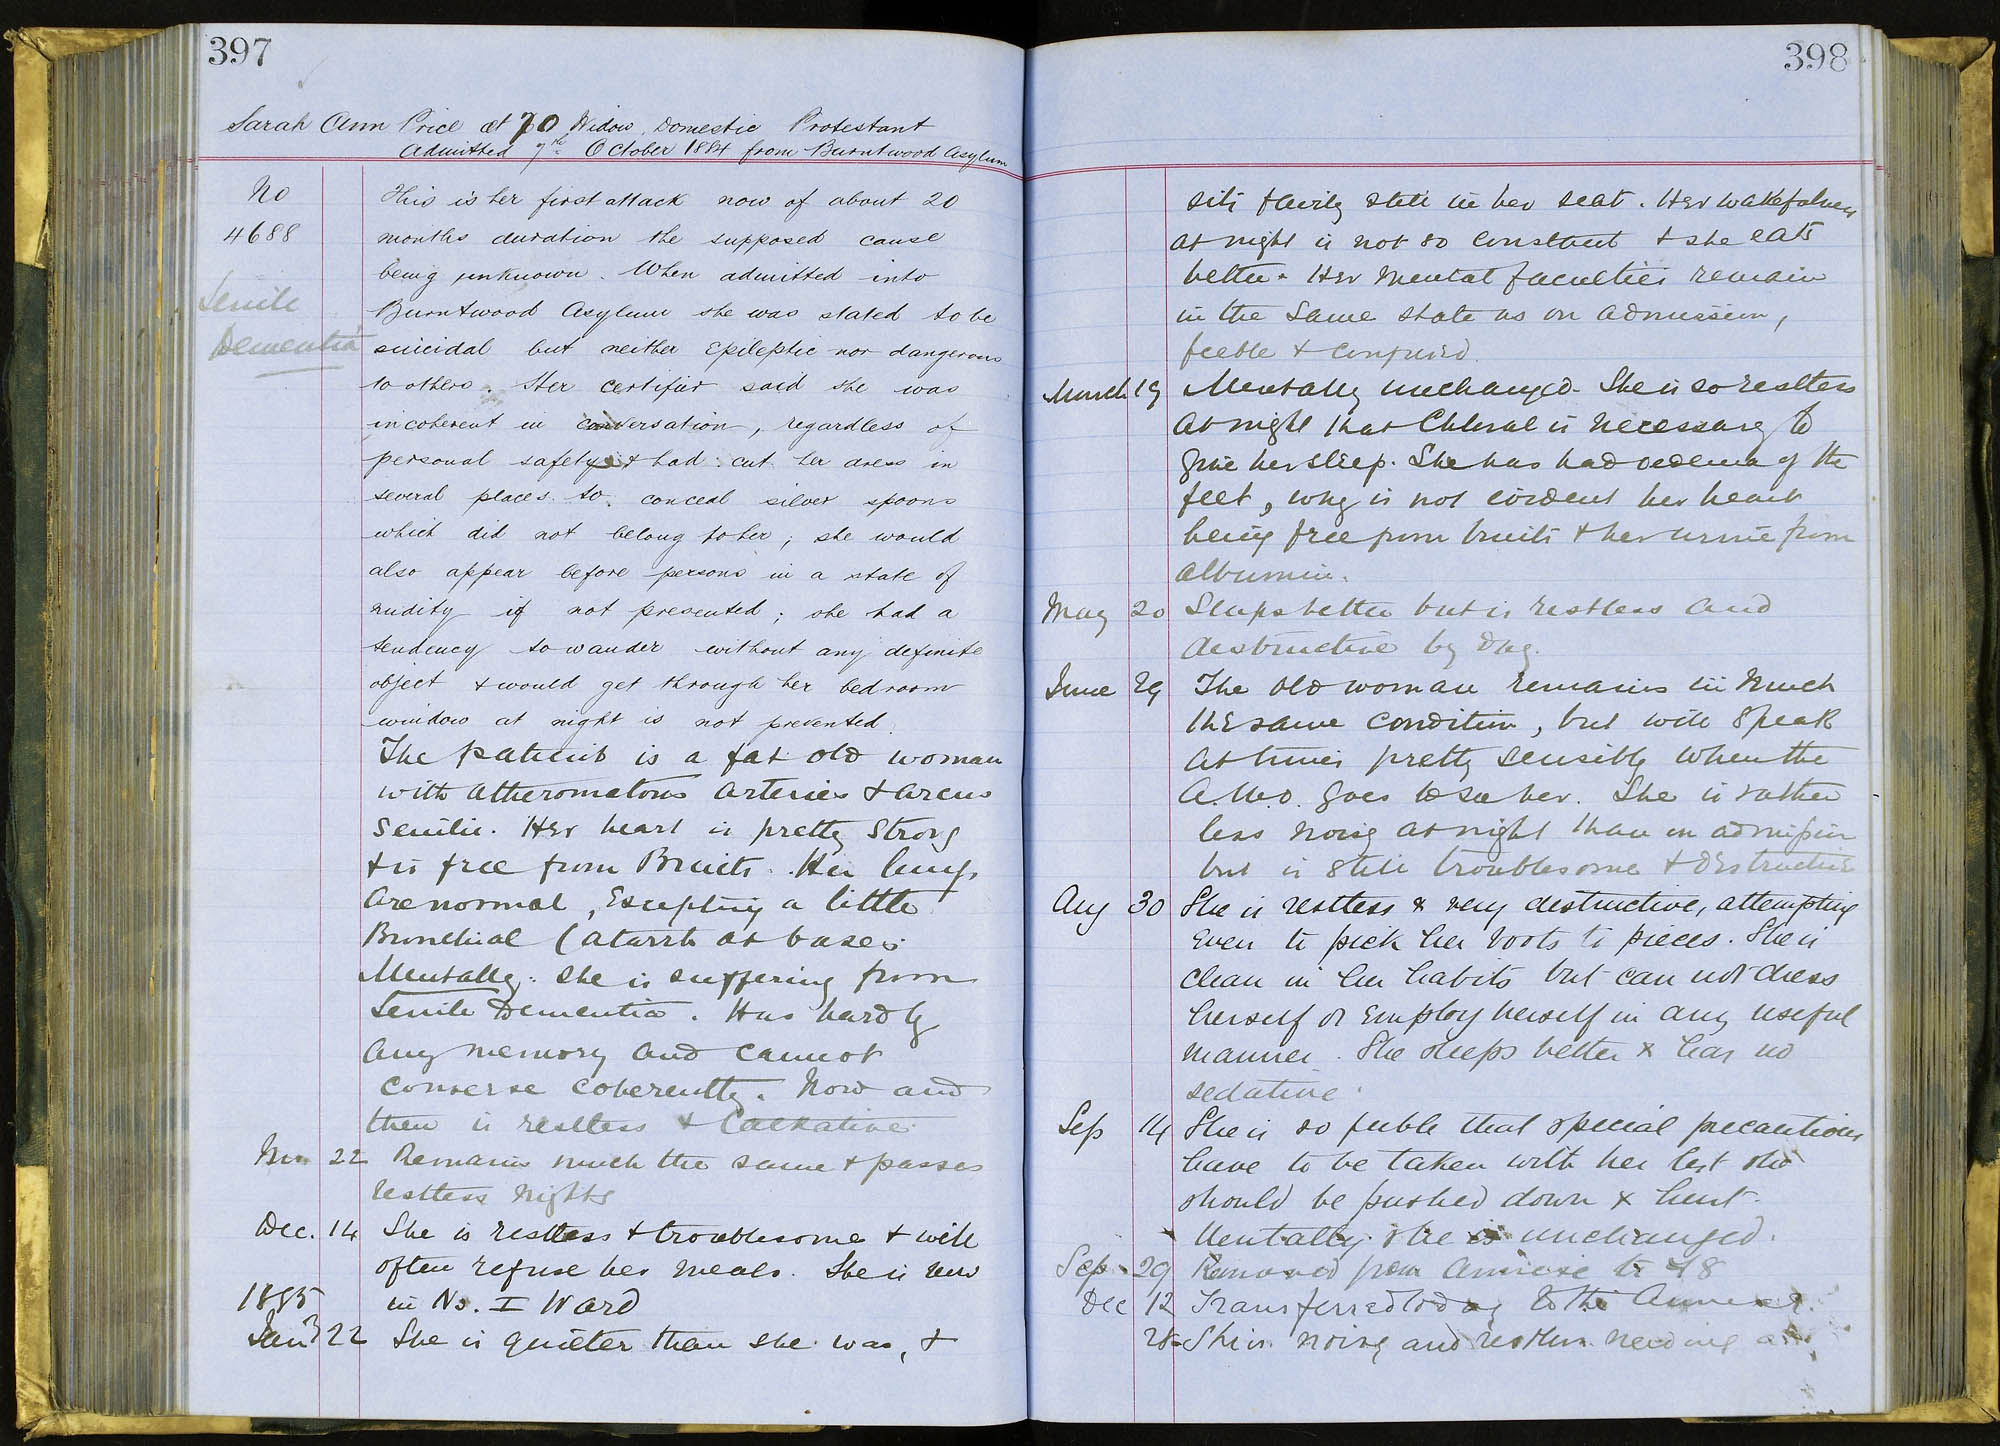 397
Sarah Ann Price æt 70 Widow Domestic Protestant
Admitted 7th October 1884 from Burntwood Asylum
No
4688
Senile
Dementia
This is her first attack now of about 20
months duration the supposed cause
being unknown. When admitted into
Burntwood Asylum she was stated to be
suicidal but neither Epileptic nor dangerous
to others. Her certifier said she was
incoherent in conversation, regardless of
personal safety & had cut her dress in
several places to conceal silver spoons
which did not belong to her; she would
also appear before persons in a state of
nudity if not prevented; she had a
tendency to wander without any definite
object & would get through her bedroom
window at night is not prevented.
The patient is a fat old woman
with atheromatous arteries & arcus
senilis. Her heart is pretty strong
& is free from Bruits. Her lungs
are normal, Excepting a little
Bronchial Catarrh at bases.
Mentally: she is suffering from
Senile Dementia. Has hardly
any memory and cannot
converse coherently. Now and
then is restless & talkative.
Nov 22 Remains much the same & passes
restless nights
Dec. 14 She is restless & troublesome & will
often refuse her meals. She is now
in No. I Ward
1885
Jany 22 She is quieter than she was, &
398
sits fairly still in her seat. Her wakefulness
at night is not so constant & she eats
better. Her mental faculties remain
in the same state as on admission,
feeble & confused.
March 19 Mentally unchanged. She is so restless
at night that Chloral is necessary to
give her sleep. She has had oedema of the
feet, why is not evident her heart
being free from bruits & her urine from
albumin.
May 20 Sleeps better but is restless and
destructive by day.
June 29 The old woman remains in much
the same condition, but will speak
at times pretty sensibly when the
A.M.O. goes to see her. She is rather
less noisy at night than on admission
but is still troublesome & destructive
Aug 30 She is restless & very destructive, attempting
even to pick her boots to pieces. She is
clean in her habits but can not dress
herself or employ herself in any useful
manner. She sleeps better & has no
sedative.
Sep 14 She is so feeble that special precautions
have to be taken with her lest she
should be pushed down & hurt.
Mentally she is unchanged.
Sep. 29 Removed from Annexe to 8
Dec 12 Transferred today to the Annexe.
28 She is noisy and restless needing